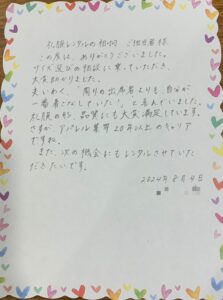 礼服レンタルの相羽 ご担当者様
この度は、ありがとうございました。
サイズ及びの相談に乗っていただき、
大変助かりました。
夫いわく、「周りの出席者よりも、自分が
一番着こなしていた」と喜んでいました。
礼服の形、品質にも大変満足しています。
さすが、アパレル業界20年以上のキャリア
ですね。
また、次の機会にもレンタルさせていた
だきたいです。
2024年8月4日